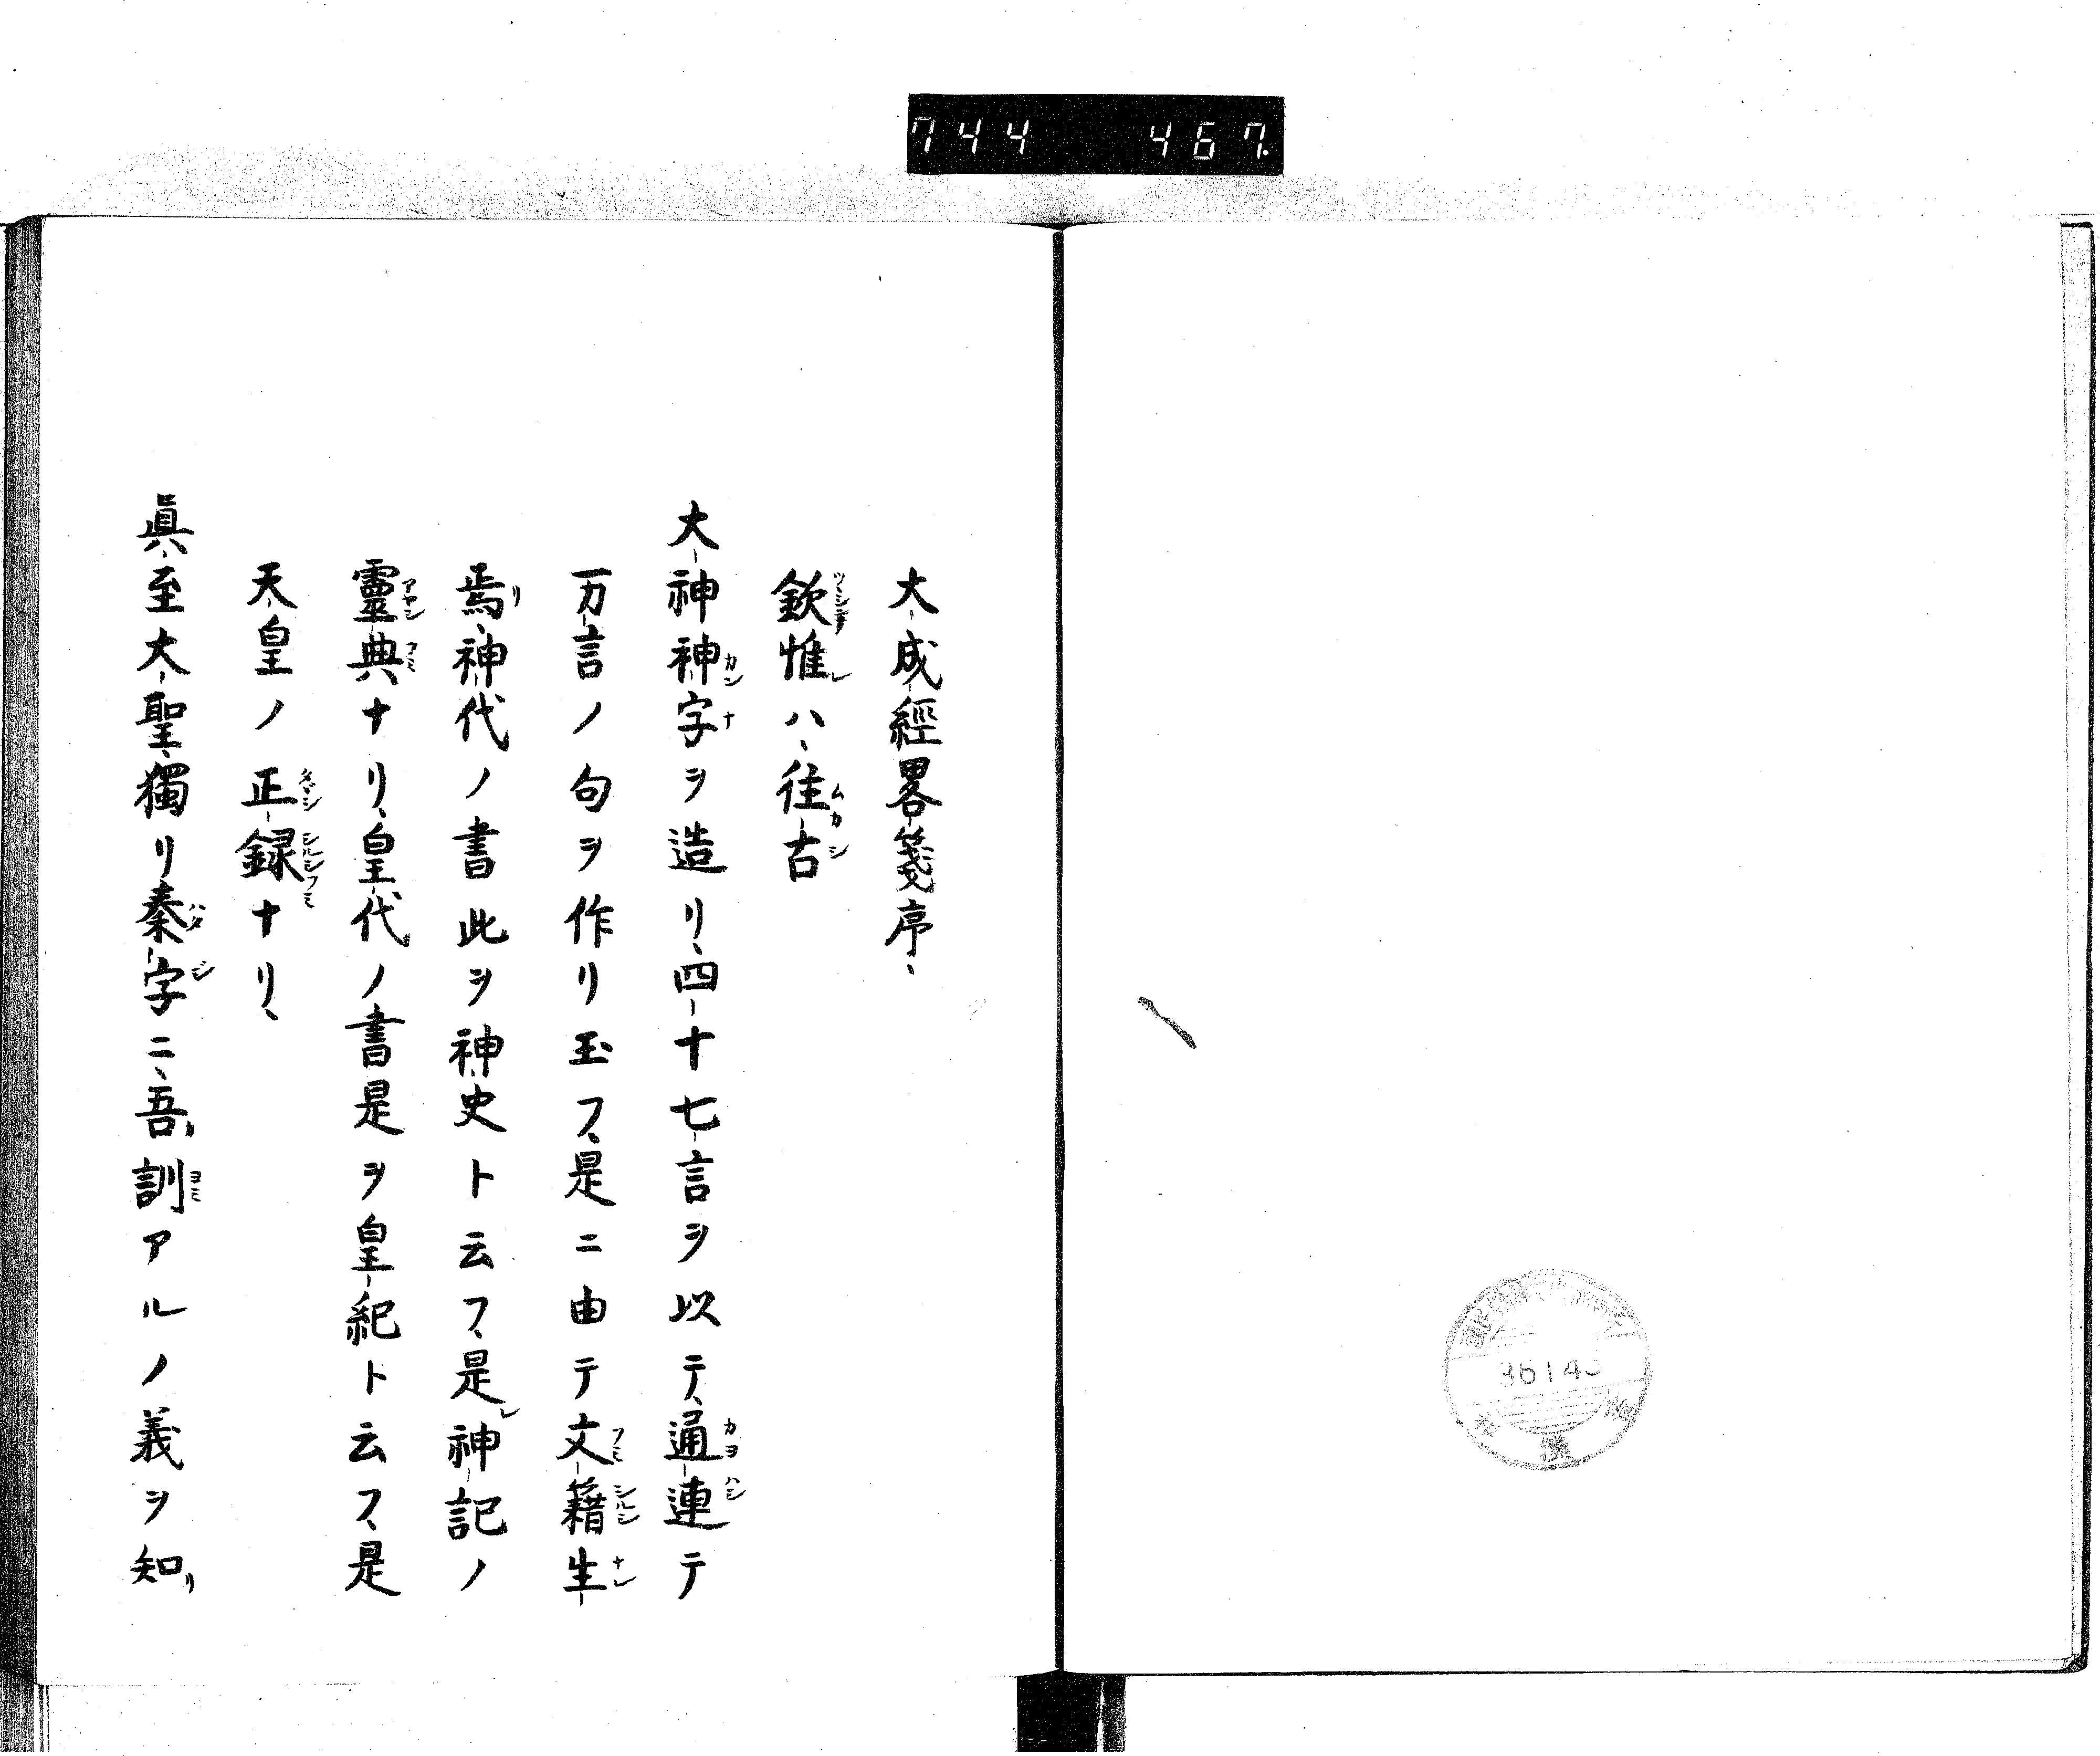 744 467.
大成經畧箋序、
欽惟レハ、往古
大神神字ヲ造リ、四十七言ヲ以テ、通連テ
万言ノ句ヲ作リ玉フ、是ニ由テ文籍生
焉、神代ノ書此ヲ神史ト云フ、是レ神記ノ
靈典ナリ、皇代ノ書是ヲ皇紀ト云フ、是
天皇ノ正録ナリ、
眞至大聖、獨リ秦字ニ、吾訓アルノ義ヲ知リ